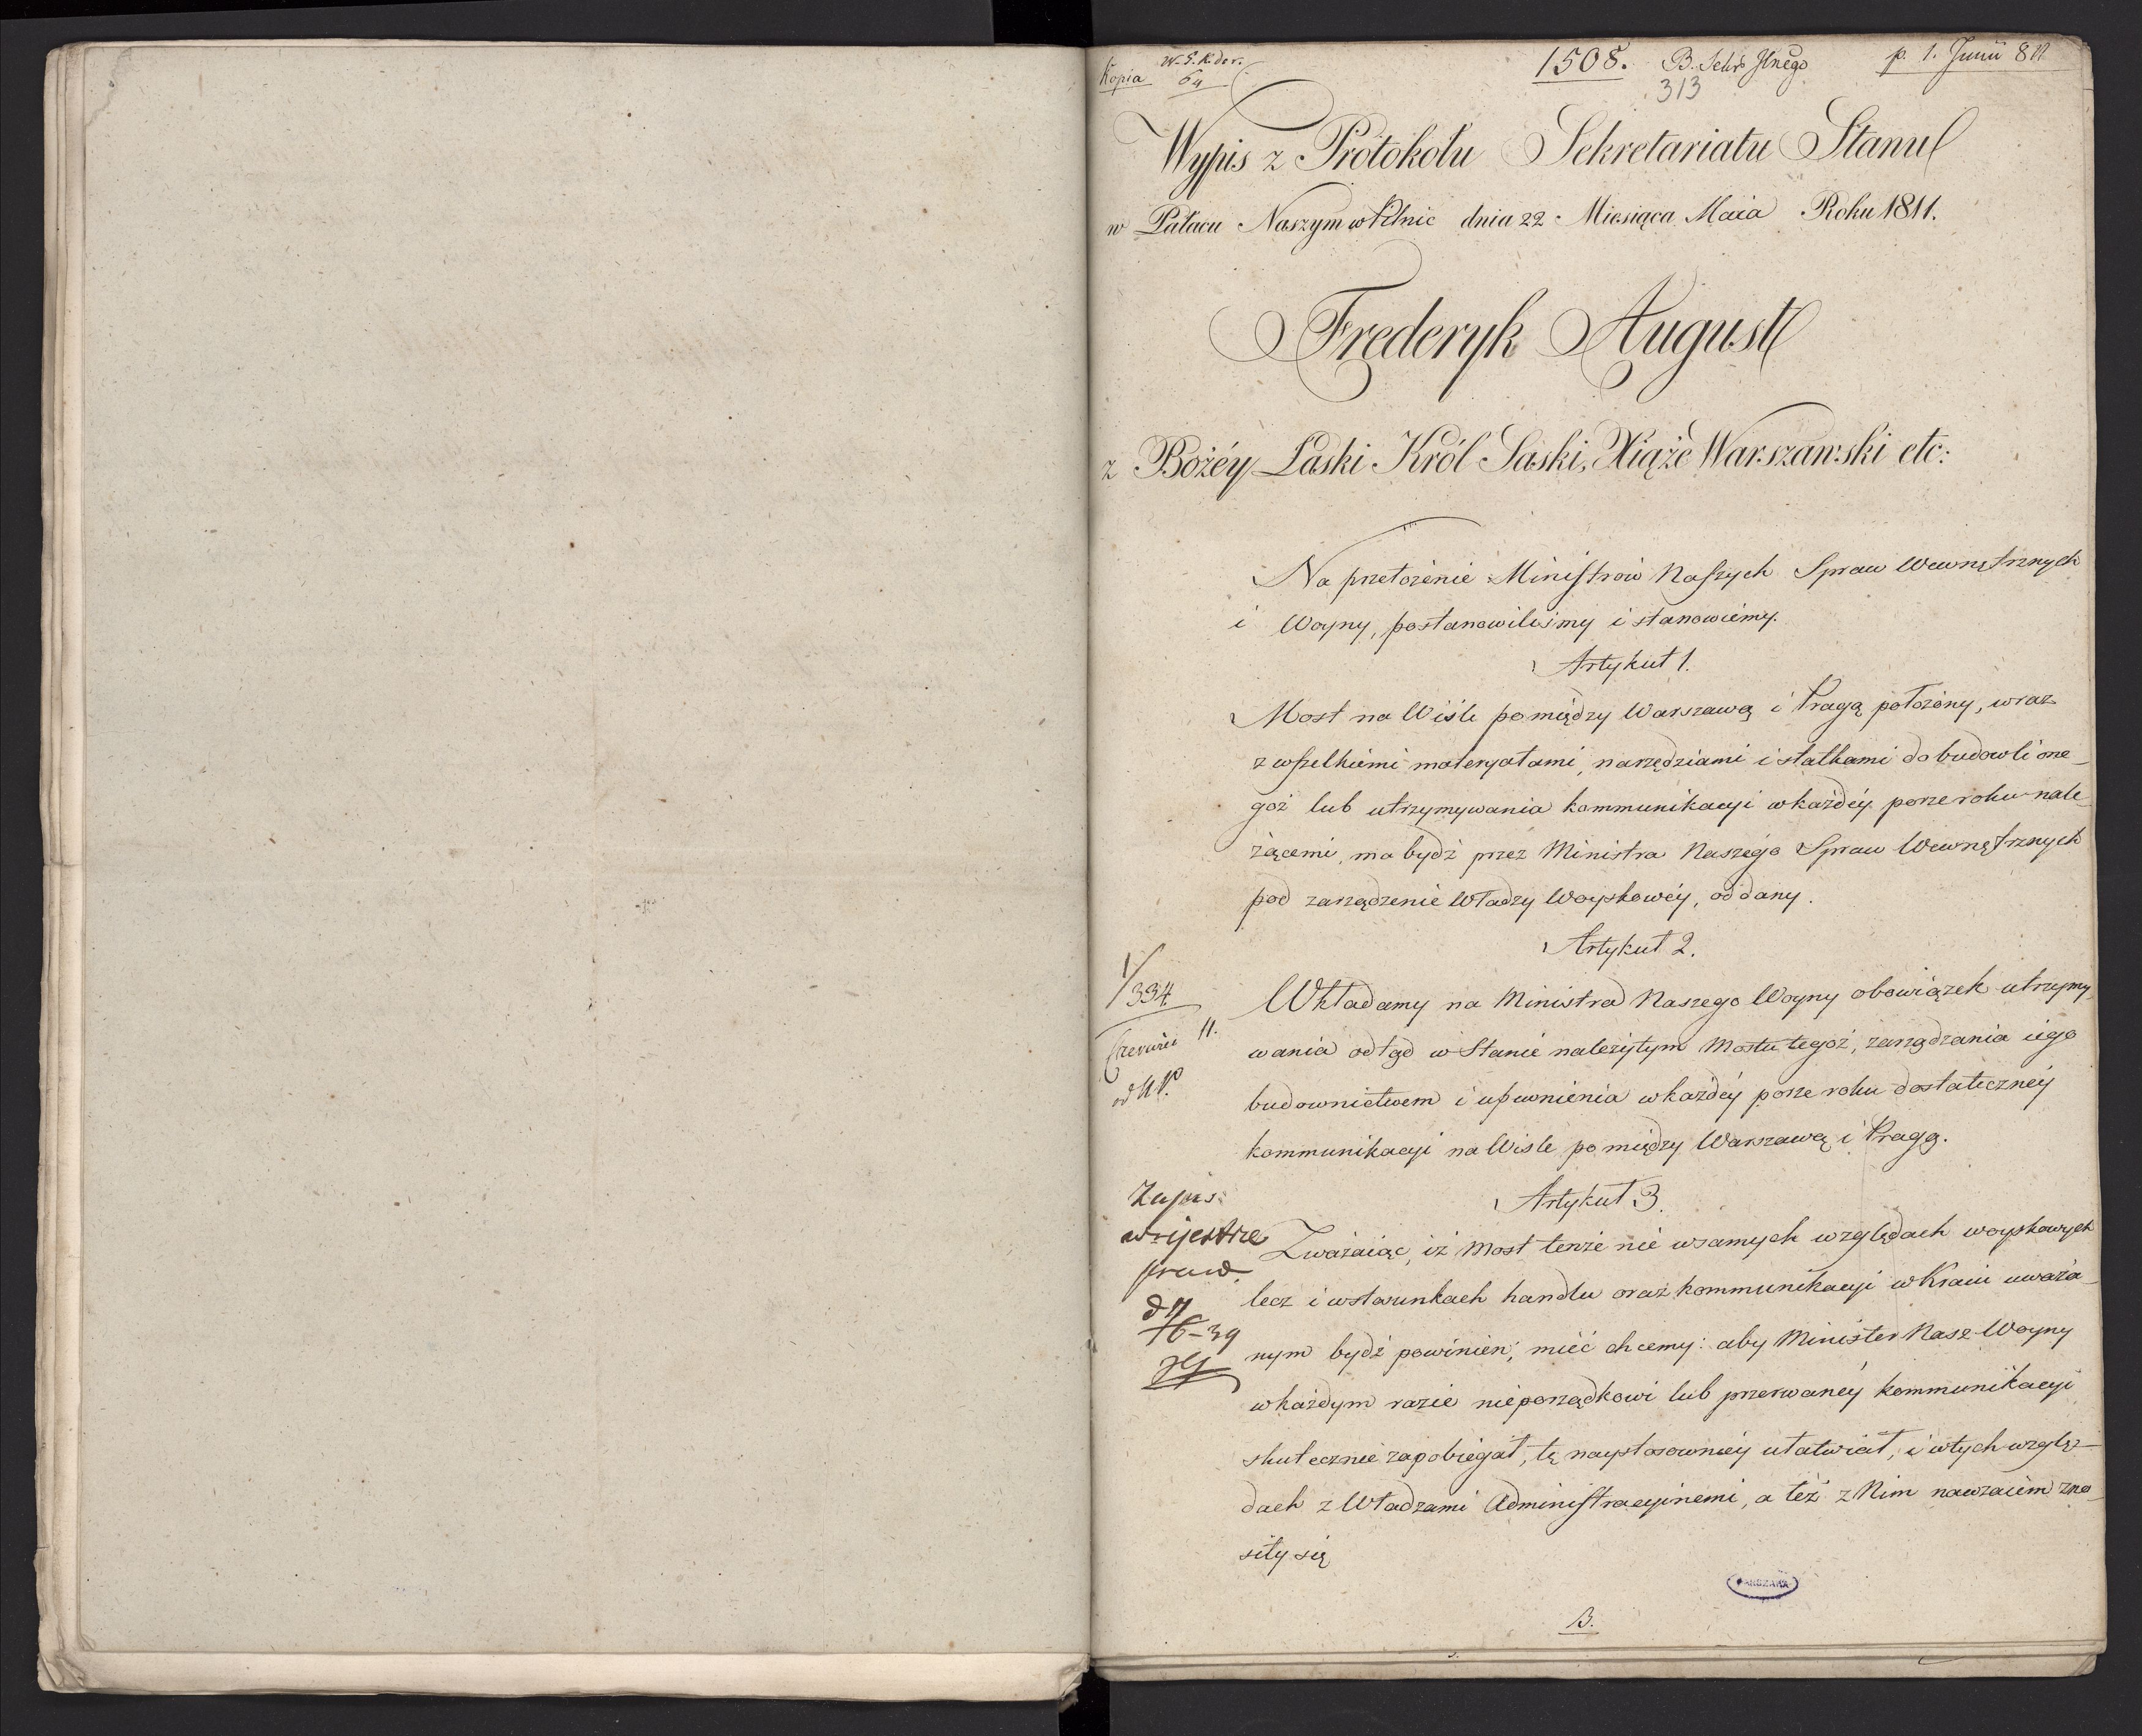 Kopia
1508.
313
p. 1. Junii 811
Wypis z Protokołu Sekretariatu Stanu
w Pałacu Naszym w Pilnic dnia 22 Miesiąca Maia Roku 1811.
Frederyk August
z Bożéy Łaski Król Saski, Xiąże Warszawski etc:
Na przełożenie Ministrów Naszych Spraw Wewnętrznych
i Woyny, postanowiliśmy i stanowiemy.
Artykuł 1.
Most na Wiśle pomiędzy Warszawą i Pragą położony, wraz
z wszelkiemi materyałami, narzędziami i statkami do budowli one-
goż lub utrzymywania kommunikacyi w każdéy porze roku nale-
żącemi, ma bydź przez Ministra Naszego Spraw Wewnętrznych
pod zarządzenie Władzy Woyskowéy, oddany.
Artykuł 2.
1/334
Wkładamy na Ministra Naszego Woyny obowiązek utrzymy-
Czerwiec 11.
wania odtąd w Stanie należytym Mostu tegoż, zarządzania iego
budownictwem i upewnienia w każdéy porze roku dostatecznéy
kommunikacyi na Wiśle pomiędzy Warszawą i Pragą.
Artykuł 3.
Zapis.
w rijestrze
Zważaiąc, iż most tenże nie w samych względach woyskowych
lecz i w stosunkach handlu oraz kommunikacyi w Kraiu uważa-
nym bydź powinien, mieć chcemy: aby Minister Nasz Woyny
w każdym razie nieporządkowi lub przerwanéy kommunikacyi
skutecznie zapobiegał, tę naystosowniéy ułatwiał, i w tych wzglę-
dach z Władzami Administracyinemi, a też z Nim nawzaiem zno-
siły się
WARSZAWA
B.